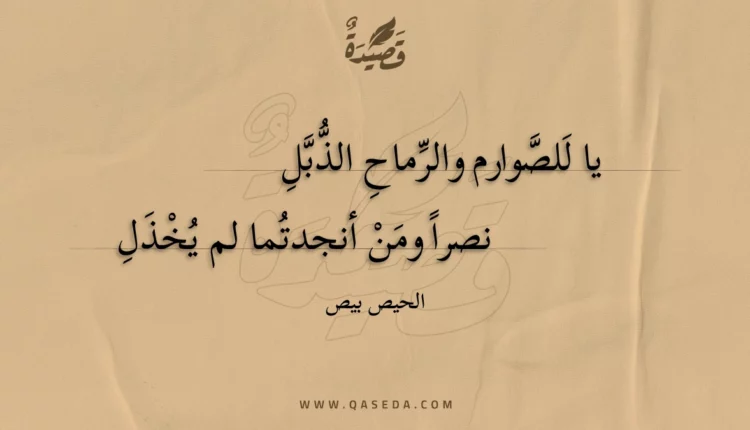 قَصِيدَةٌ
يا لَلصَّوارم والرِّماحِ الذُّبَّلِ
نصراً ومَنْ أنجدتُما لم يُخْذَلِ
الحيص بيص
WWW.QASEDA.COM